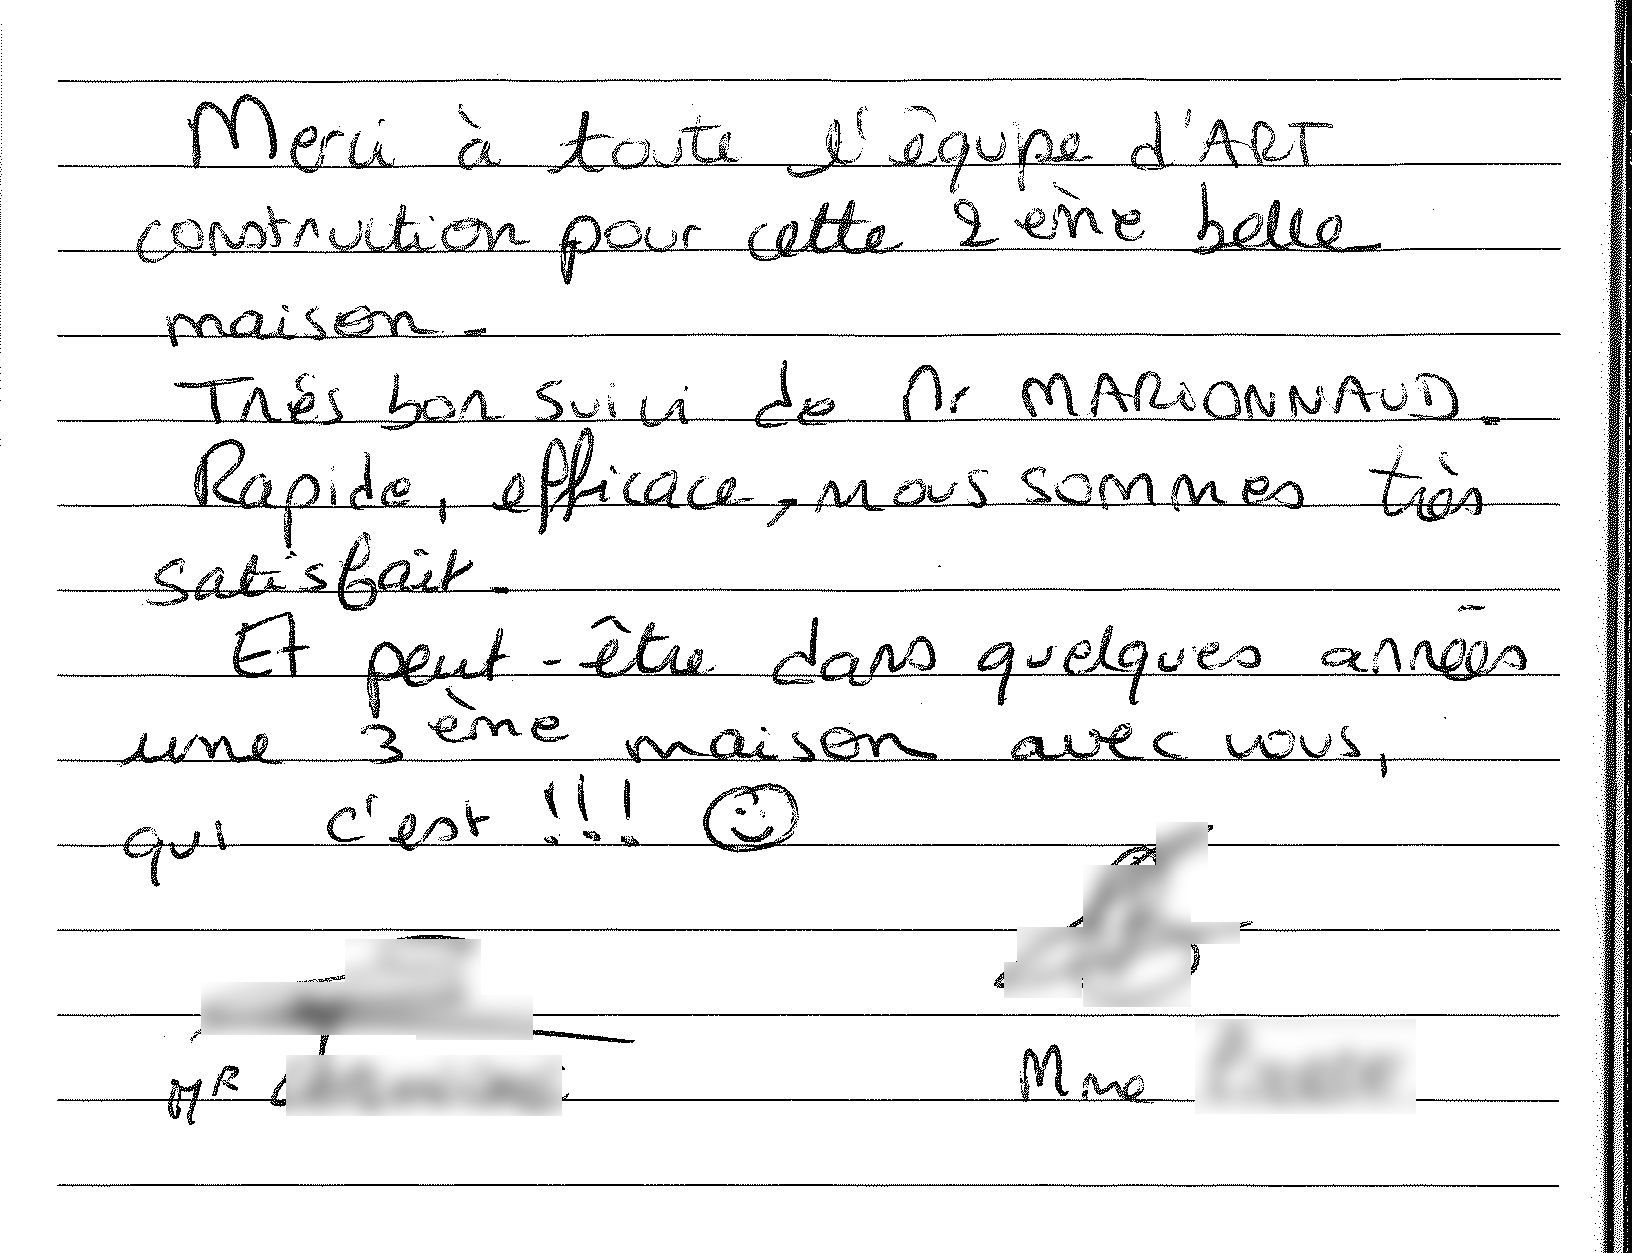 Merci à toute l'équipe d'ART
construction pour cette 2ème belle
maison.
Très bon suivi de Mr MARIONNAUD.
Rapide, efficace, nous sommes très
satisfait.
Et peut-être dans quelques années
une 3ème maison avec vous,
qui c'est !!! 
Mr
Mme